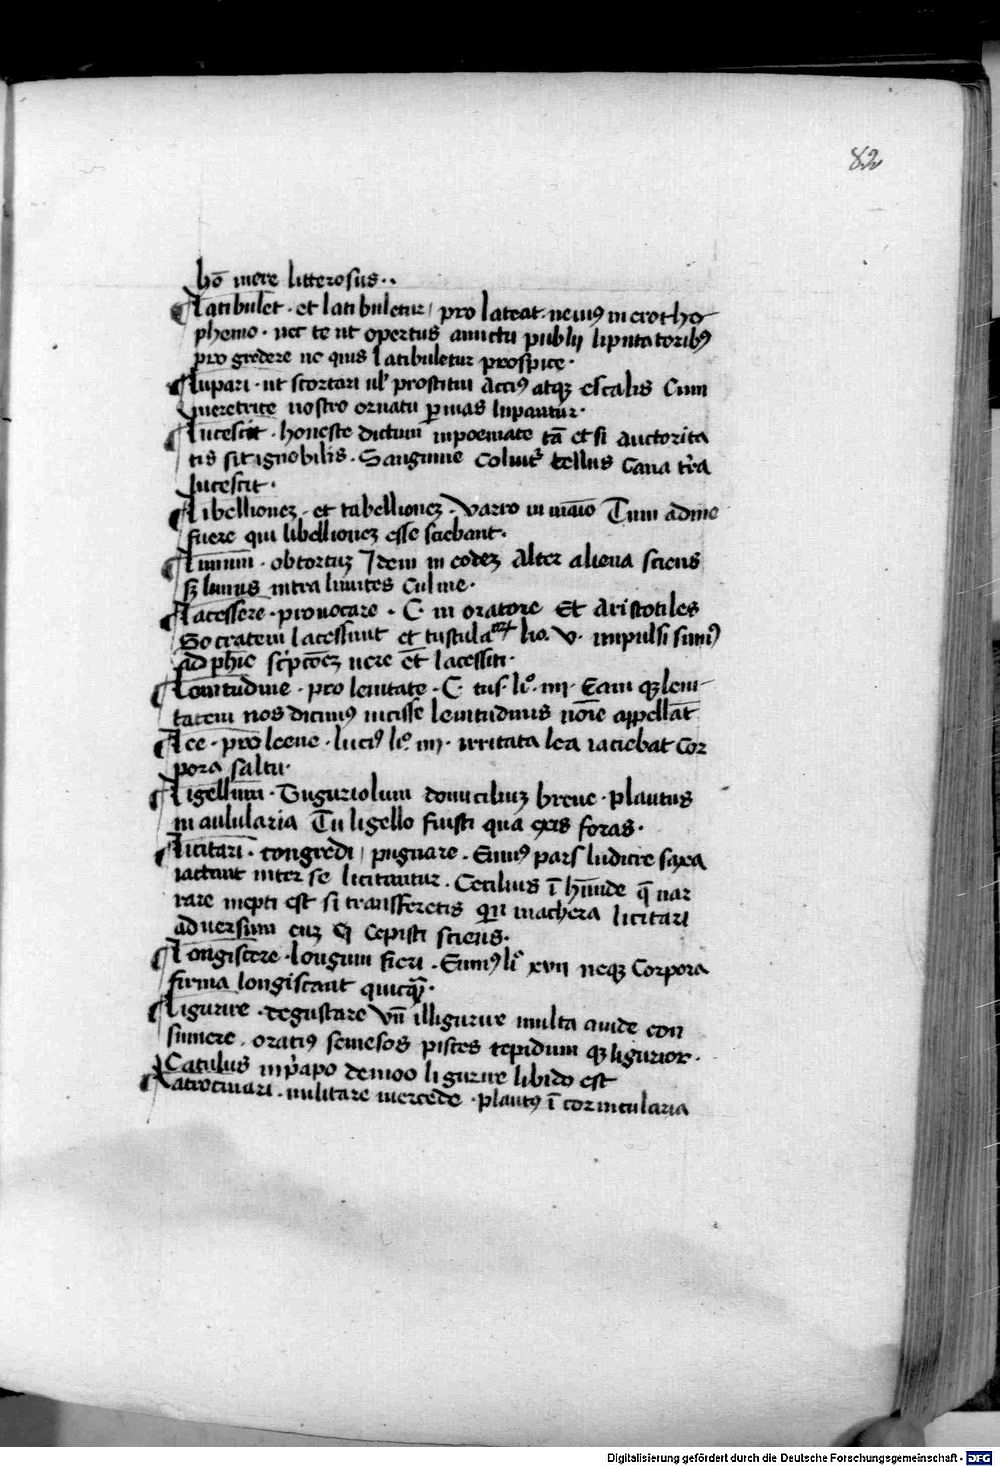 82
hō mere litterosus..
Latibulet · et latibuletur / pro lateat · neuiꝰ in erotho
phemo · nec te ut opertus amictu publij liputatoribꝰ
pro gredere ne quis latibuletur prospice ·
Lupari · ut scortari ul' prostitui Acciꝰ atqꝫ escalis Cum
meretrice nostro ornatu ꝑuias lupantur ·
Lucescit · honeste dictum in poemate tā etsi auctorita
tis sit ignobilis · Sanguine coluitᷣ tellus Caua tr̄a
lucescit ·
Libellioneꝫ · et tabellioneꝫ · Varro in maīo Tum ad me
fuere qui libellioneꝫ esse sciebant ·
Limum · obtortuꝫ Idem in eodeꝫ Alter aliena sciens
sꝫ limus intra limites culine ·
Lacessere · prouocare · C· in oratore Et Aristotiles
Socratem lacessiuit et tuscula lio. V· impulsi sumꝰ
ad phīe sc̄ptōeꝫ uere ēt lacessiti ·
Lenitudine · pro lenitate · C· tus· li°· iiij· Eam qꝫ leni
tatem nos dicimꝰ uicisse lenitudinis nōie appellāt
Lee · pro leene · luciꝰ li°· iiij· irritata lea iaciebat Cor
pora saltu ·
Ligellum · Tuguriolum domiciliuꝫ breue · plautus
in aulularia Tu ligello fuisti qua exis foras ·
Licitari · congredi / pugnare · Enniꝰ pars ludicre saxa
iactant inter se licitantur · Cecilius ī hīnide q̄ nar
rare inepti est si transferetis qn machera licitari
aduersum euꝫ cepisti sciens ·
Longiscere · longum fieri · Enniꝰ li° xvij neqꝫ Corpora
firma longiscunt quicq̄ ·
Ligurire · degustare Vn̄ illigurire multa auide con
sumere · oratiꝰ semesos pisces tepidum qꝫ ligurior ·
Catulus in p̄apo de meo ligurire libido est
Latrocinari · militare mercede · plautꝰ ī cornicularia
Digitalisierung gefördert durch die Deutsche Forschungsgemeinschaft · DFG